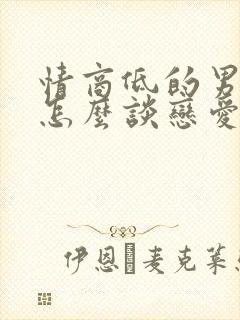 情商低的男
怎麼談戀愛
伊恩 麥克葉